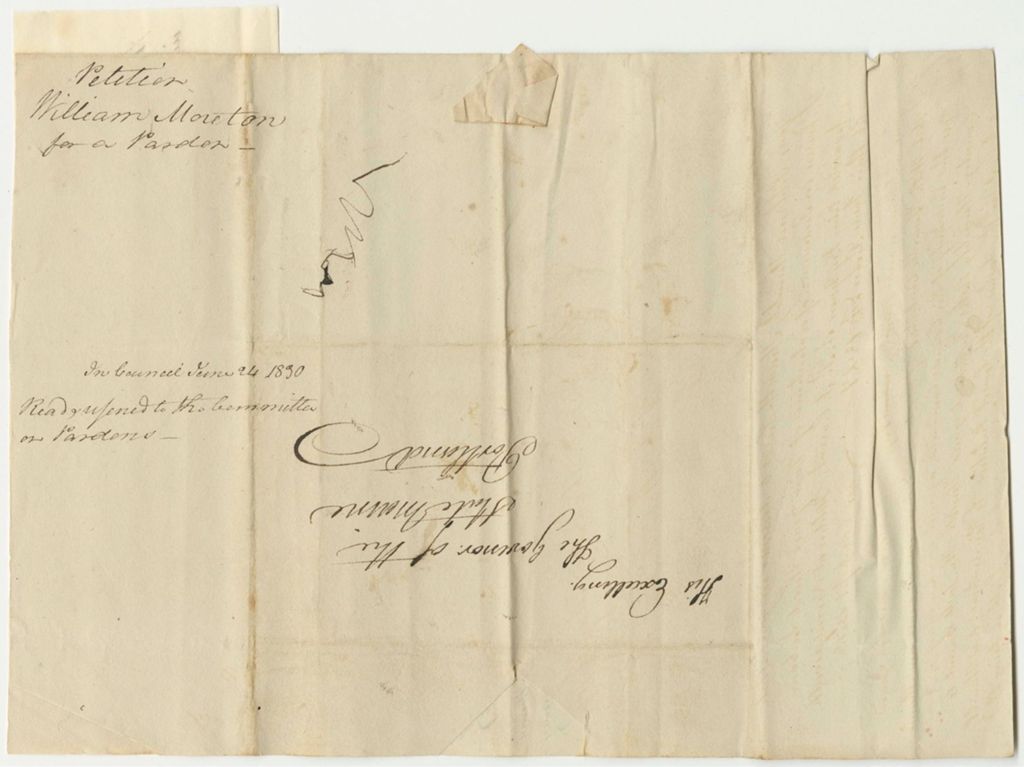 Petition
William Moreton
for a Pardon —
In Council June 24 1830
Read & refered to the Committee
on Pardons —
His Excellency.
The Govenor of the
State Maine
Portland